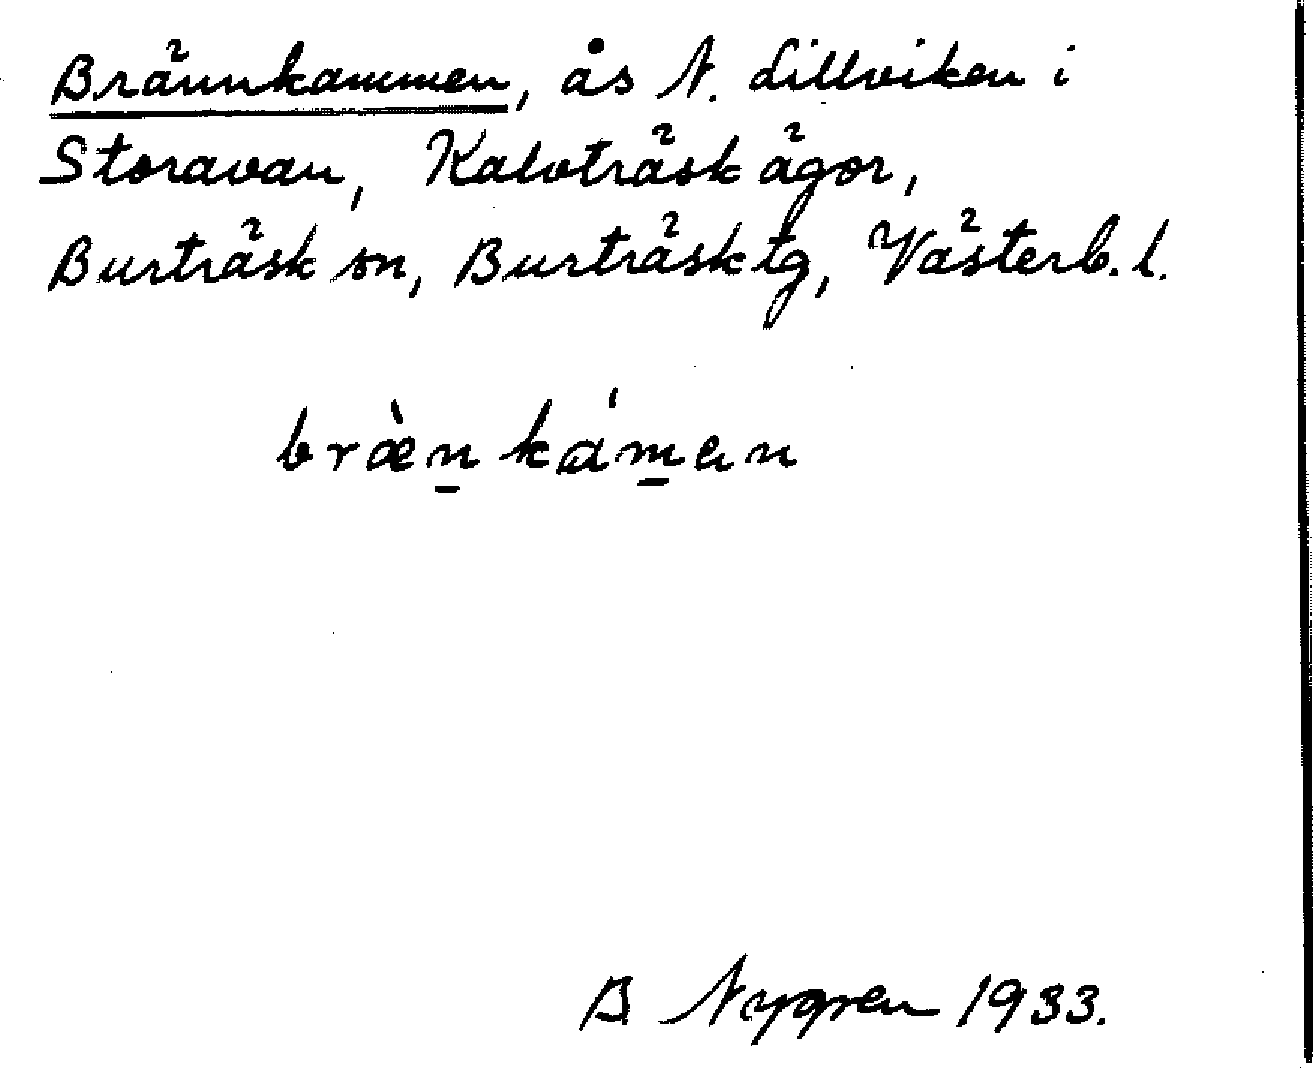 Brännkammen, ås N. Lillviken i
Storavan, Kalvträsk ägor,
Burträsk sn, Burträsk tg, Västerb. l.
bræ̀n̠ kám̠en
B Nygren 1933.